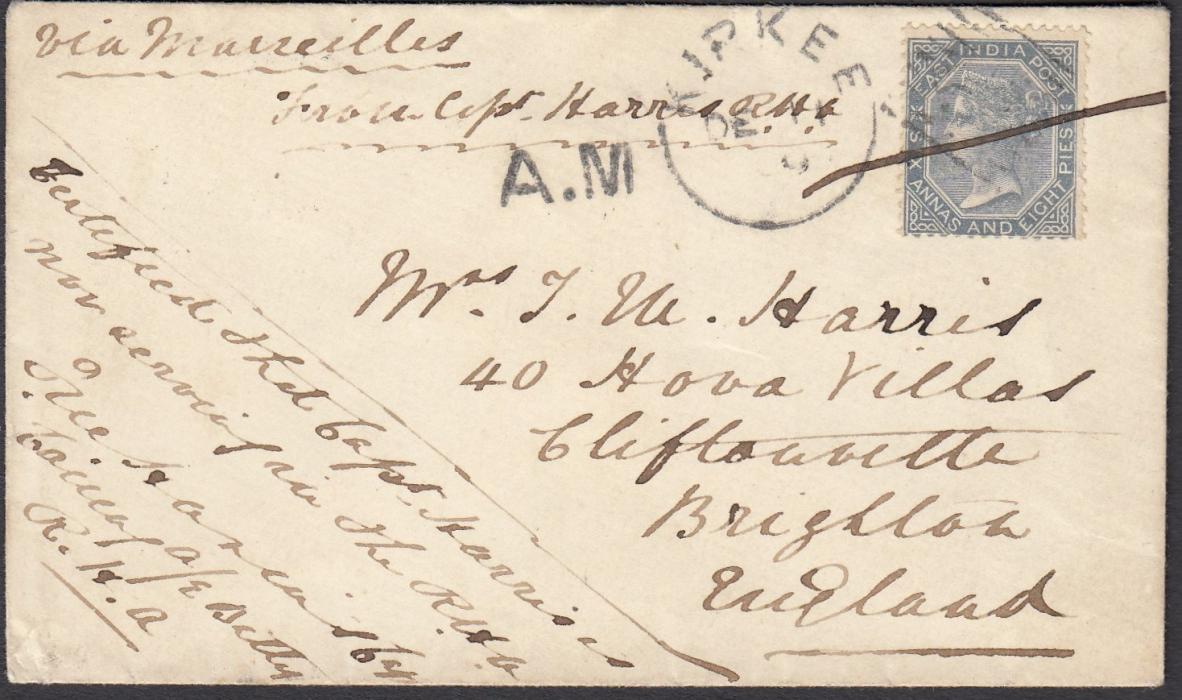 via Marseilles
From Capt. Harris R.H.A
KIRKEE
DE
A.M
EAST INDIA POST
SIX ANNAS AND EIGHT PIES
Mrs. T. M. Harris
40 Hova Villas
Cliftonville
Brighton
England
Certified that Capt. Harris is
now serving in the R.H.A.
Comg A/E Batty
R.H.A